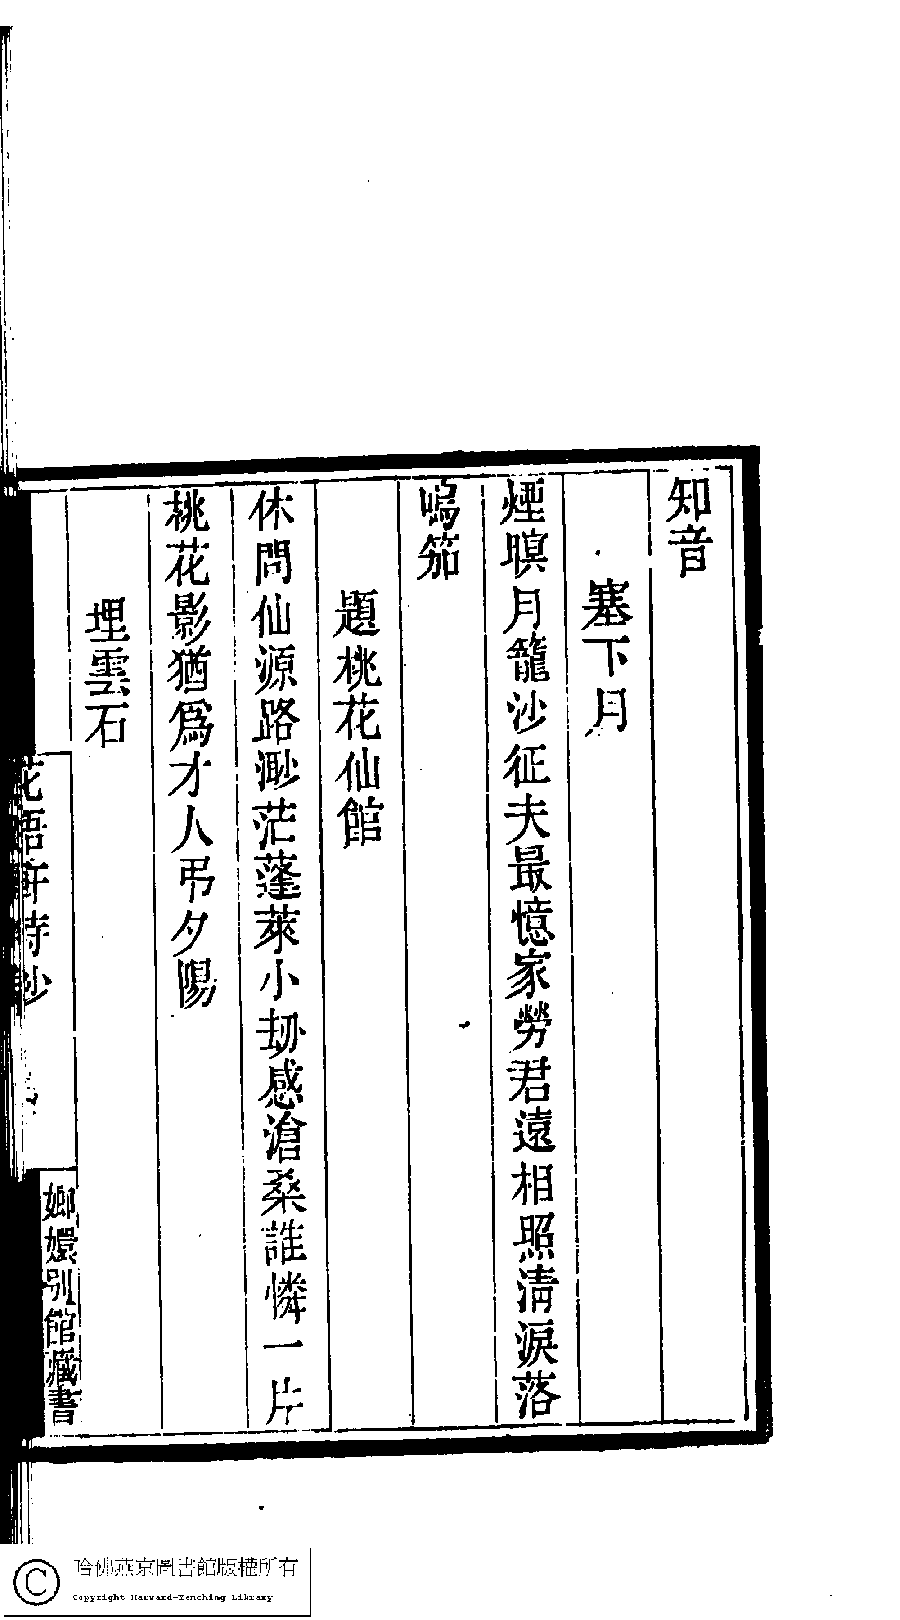 知音
塞下月
煙暝月籠沙征夫最憶家勞君遠相照清淚落
鳴笳
題桃花仙館
休問仙源路渺茫蓬萊小刼感滄桑誰憐一片
桃花影猶爲才人弔夕陽
埋雲石
花語軒詩鈔
嫏嬛別館藏書
哈佛燕京圖書館版權所有
Copyright Harvard-Yenching Library